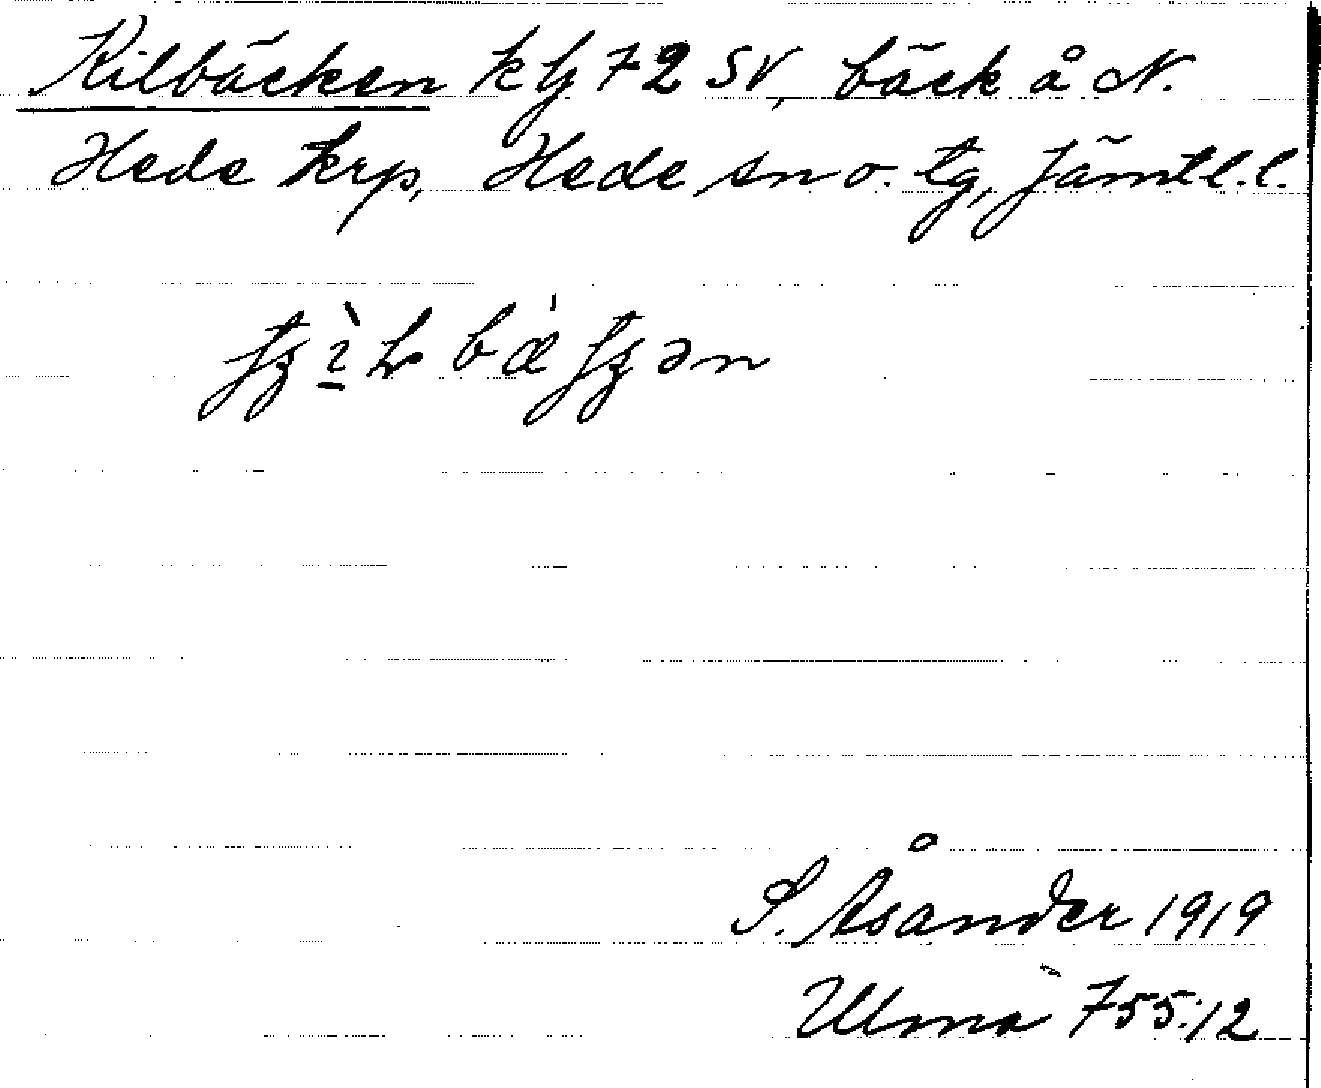 Kilbäcken k bj 72 SV, bäck å N.
Hede krp, Hede sn o. tg, Jämtl. l.
S. Åsander 1919
Ulma 755:12